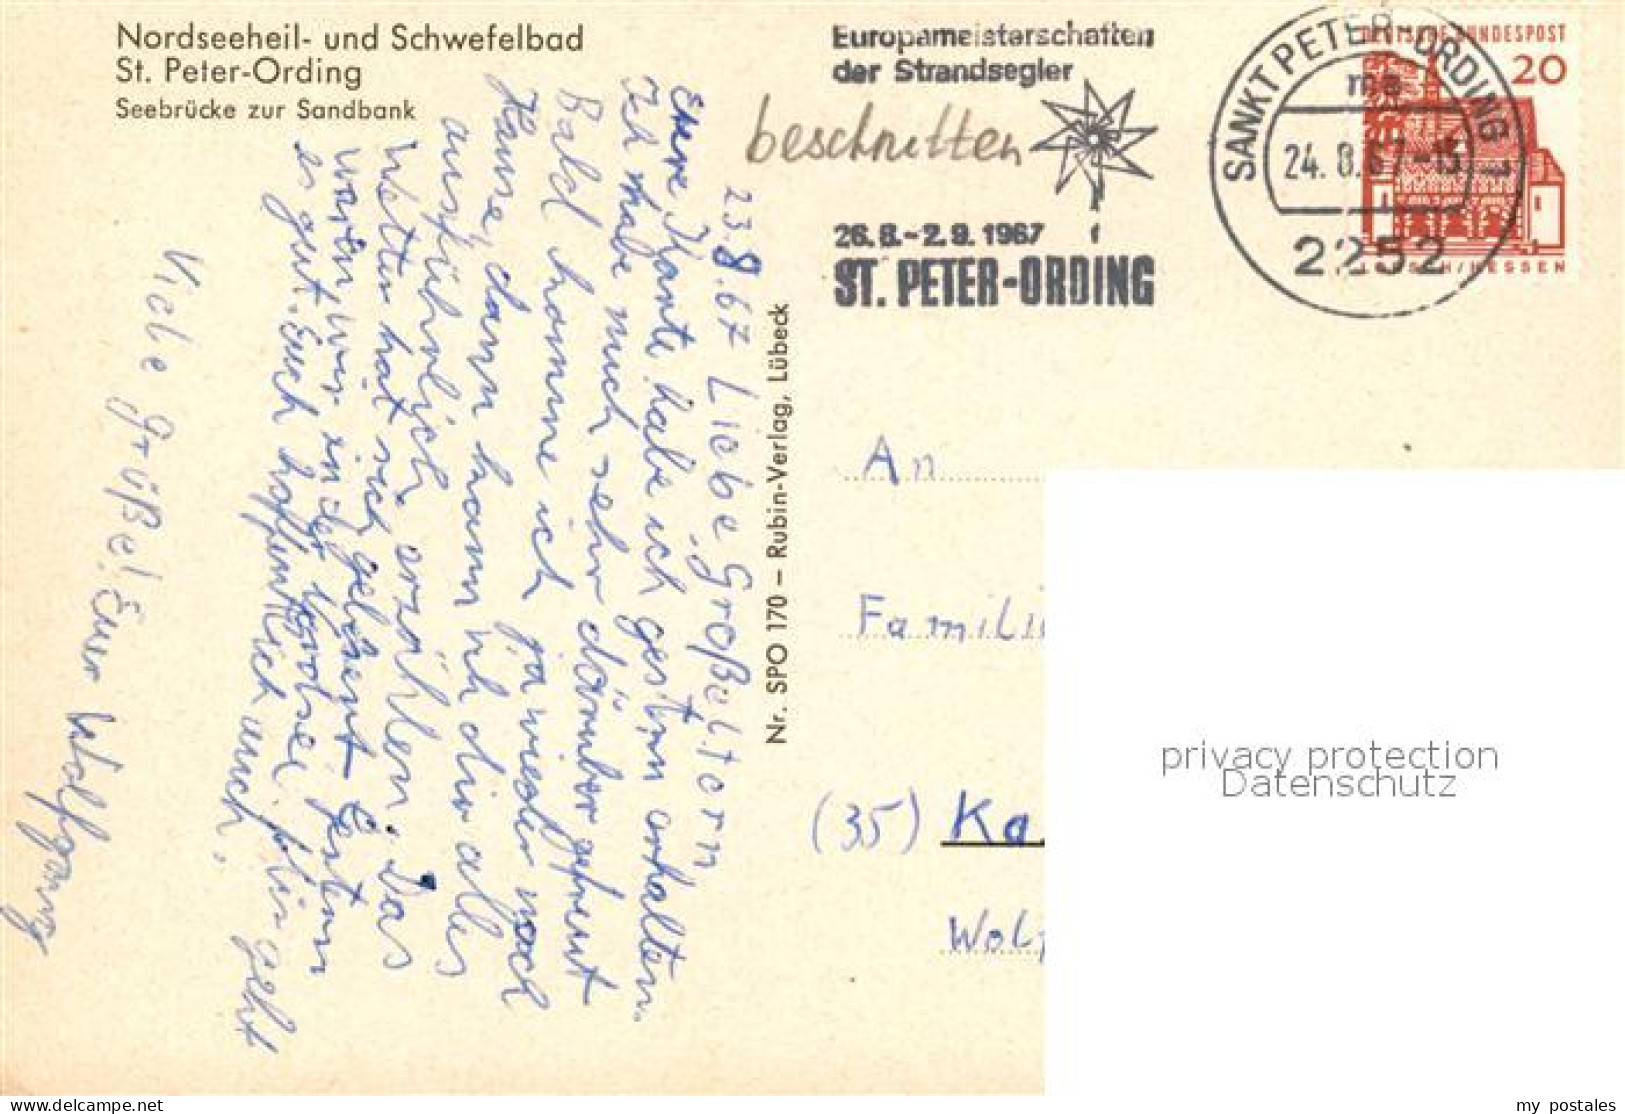 Nordseeheil- und Schwefelbad
St. Peter-Ording
Seebrücke zur Sandbank
23.8.67 Liebe Großeltern
Eure Karte habe ich gestern erhalten.
Ich habe mich sehr darüber gefreut
Bald komme ich ja wieder nach
Hause, dann kann ich dir alles
ausführlich erzählen. Das
Wetter hat sich gelehnt. Gestern
waren wir in der Nordsee. Mir geht
es gut. Euch hoffentlich auch.
Viele Grüße! Euer Wolfgang
Nr. SPO 170 – Rubin-Verlag, Lübeck
Europameisterschaften
der Strandsegler
beschnitten
26.8.-2.9.1967
ST. PETER-ORDING
SANKT PETER-ORDING 1
ma
24.8.67-15
2252
DEUTSCHE BUNDESPOST
20
LORSCH/HESSEN
An
Famili
(35) Ka
Wolf
privacy protection
Datenschutz
the-best-of-website
my postales